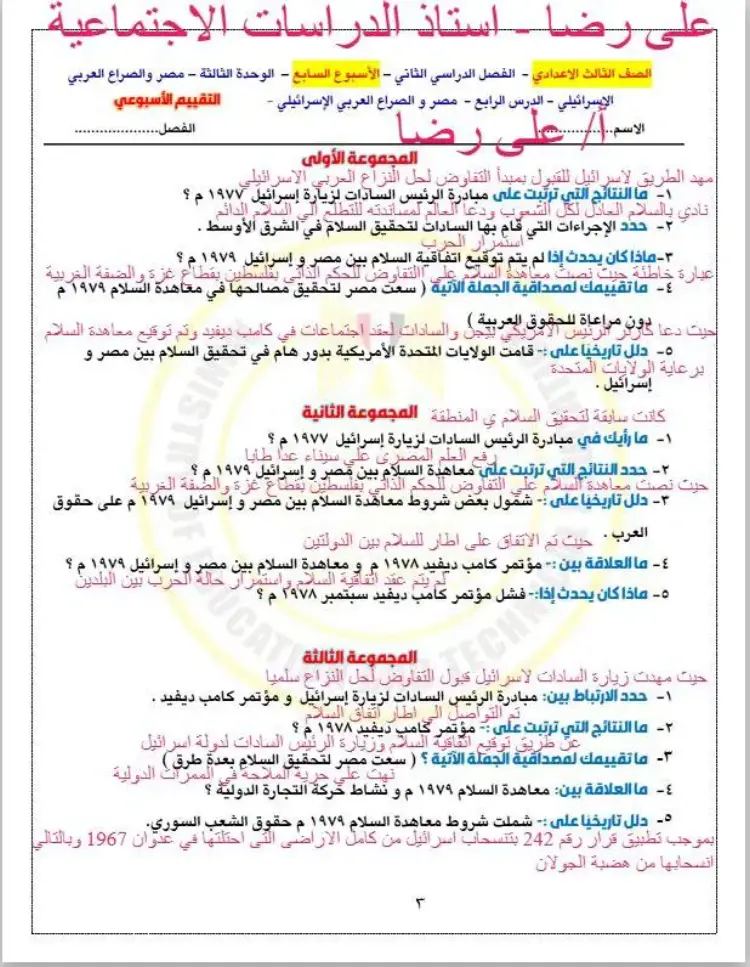 على رضا - استاذ الدراسات الاجتماعية
الصف الثالث الاعدادي - الفصل الدراسي الثاني - الأسبوع السابع - الوحدة الثالثة - مصر والصراع العربي
الإسرائيلي - الدرس الرابع - مصر و الصراع العربي الإسرائيلي - التقييم الأسبوعي
أ/ على رضا
الاسم.................. الفصل....................
المجموعة الأولى
مهد الطريق لاسرائيل للقبول بمبدأ التفاوض لحل النزاع العربي الاسرائيلي
١- ما النتائج التي ترتبت على مبادرة الرئيس السادات لزيارة إسرائيل ١٩٧٧ م ؟
نادي بالسلام العادل لكل الشعوب ودعا العالم لمساندته للتطلع الي السلام الدائم
٢- حدد الإجراءات التي قام بها السادات لتحقيق السلام في الشرق الأوسط .
استمرار الحرب
٣-ماذا كان يحدث إذا لم يتم توقيع اتفاقية السلام بين مصر و إسرائيل ١٩٧٩ م ؟
عبارة خاطئة حيث نصت معاهدة السلام علي التفاوض للحكم الذاتي بفلسطين بقطاع غزة والضفة الغربية
٤- ما تقييمك لمصداقية الجملة الآتية ( سعت مصر لتحقيق مصالحها في معاهدة السلام ١٩٧٩ م
دون مراعاة للحقوق العربية )
حيث دعا كارتر الرئيس الامريكي بيجن والسادات لعقد اجتماعات في كامب ديفيد وتم توقيع معاهدة السلام
٥- دلل تاريخيا على :- قامت الولايات المتحدة الأمريكية بدور هام في تحقيق السلام بين مصر و
برعاية الولايات المتحدة
إسرائيل .
المجموعة الثانية
كانت سابقة لتحقيق السلام ي المنطقة
١- ما رأيك في مبادرة الرئيس السادات لزيارة إسرائيل ١٩٧٧ م ؟
رفع العلم المصرى علي سيناء عدا طابا
٢- حدد النتائج التي ترتبت علي معاهدة السلام بين مصر و إسرائيل ١٩٧٩ م ؟
حيث نصت معاهدة السلام علي التفاوض للحكم الذاتي بفلسطين بقطاع غزة والضفة الغربية
٣- دلل تاريخيا على :- شمول بعض شروط معاهدة السلام بين مصر و إسرائيل ١٩٧٩ م على حقوق
العرب .
حيث تم الاتفاق على اطار للسلام بين الدولتين
٤- ما العلاقة بين :- مؤتمر كامب ديفيد ١٩٧٨ م و معاهدة السلام بين مصر و إسرائيل ١٩٧٩ م ؟
لم يتم عقد اتفاقية السلام واستمرار حالة الحرب بين البلدين
٥- ماذا كان يحدث إذا:- فشل مؤتمر كامب ديفيد سبتمبر ١٩٧٨ م ؟
المجموعة الثالثة
حيث مهدت زيارة السادات لاسرائيل قبول التفاوض لحل النزاع سلميا
١- حدد الارتباط بين: مبادرة الرئيس السادات لزيارة إسرائيل و مؤتمر كامب ديفيد .
تم التواصل الي اطار اتفاق السلام
٢- ما النتائج التي ترتبت على :- مؤتمر كامب ديفيد ١٩٧٨ م ؟
عن طريق توقيع اتفاقية السلام وزيارة الرئيس السادات لدولة اسرائيل
٣- ما تقييمك لمصداقية الجملة الآتية ؟ ( سعت مصر لتحقيق السلام بعدة طرق )
نهت علي حرية الملاحة في الممرات الدولية
٤- ما العلاقة بين: معاهدة السلام ١٩٧٩ م و نشاط حركة التجارة الدولية ؟
٥- دلل تاريخيا على :- شملت شروط معاهدة السلام ١٩٧٩ م حقوق الشعب السوري.
بموجب تطبيق قرار رقم 242 بتنسحاب اسرائيل من كامل الاراضى التى احتلتها في عدوان 1967 وبالتالي
انسحابها من هضبة الجولان
٣